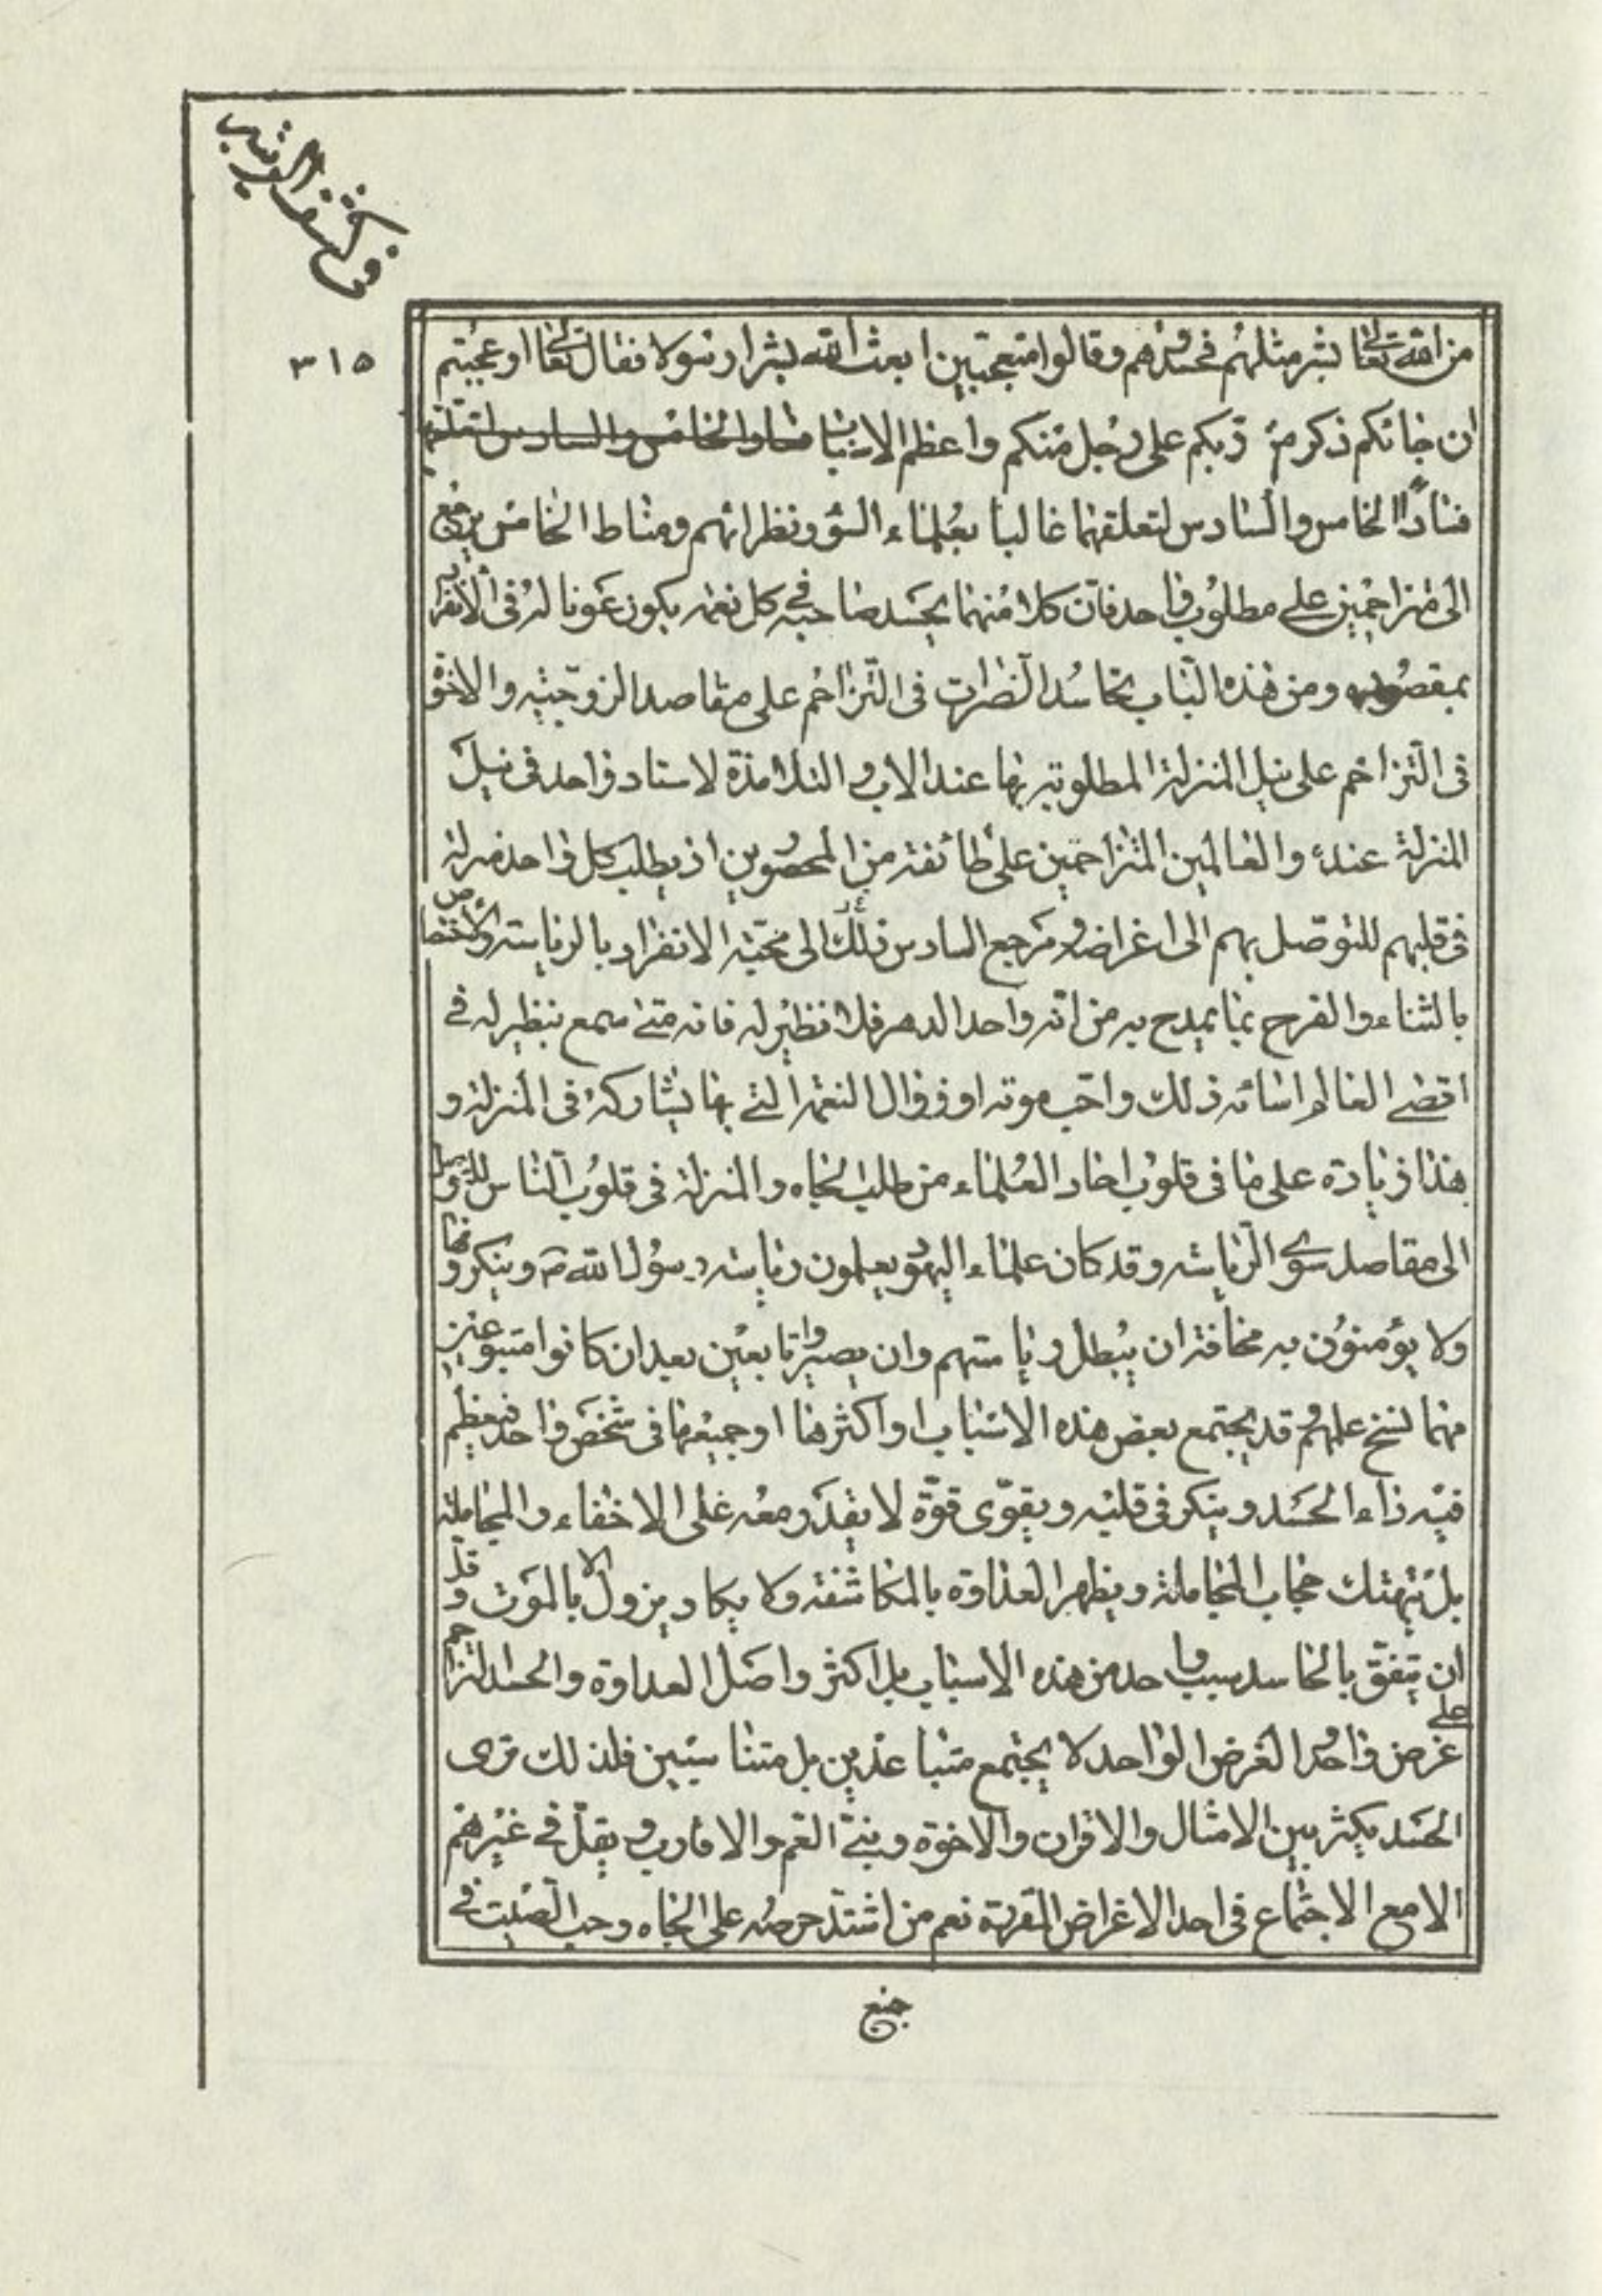 فی کشف الریبة
٣١٥
من الله تعالى بشر مثلهم فحسدوهم وقالوا متعجبین ابعث الله بشرا رسولا فقال تعالى اوعجبتم
ان جائكم ذكر من ربكم على رجل منكم واعظم الاسباب فسادا الخامس والسادس لتعلقهما
فسادا الخامس والسادس لتعلقهما غالبا بعلماء السوء ونظرائهم ومناط الخامس یرجع
الى متزاحمین على مطلوب واحد فان كلا منهما یحسد صاحبه فی كل نعمة یكون عونا له فی الانفراد
بمقصوده ومن هذه الباب تحاسد الضرات فی التزاحم على مقاصد الزوجیة والاخوة
فی التزاحم على نیل المنزلة المطلوبة بها عند الاب والتلامذة لاستاد واحد فی نیل
المنزلة عنده والعالمین المتزاحمین على طائفة من المحصورین اذ یطلب كل واحد منزلة
فی قلبهم للتوصل بهم الى اغراضه ومرجع السادس ذلك الى محبة الانفراد بالریاسة والاختصاص
بالثناء والفرح بما یمدح به من انه واحد الدهر فلا نظیر له فانه متى سمع بنظیر له فی
اقصى العالم اسائه ذلك واحب موته او زوال النعمة التی بها یشاركه فی المنزلة و
هذا زیادة على ما فی قلوب احاد العلماء من طلب الجاه والمنزلة فی قلوب الناس للتوصل
الى مقاصد سوى الریاسة وقد كان علماء الیهود یعلمون ریاسة رسول الله ص وینكرونها
ولا یؤمنون به مخافة ان یبطل ریاستهم وان یصیروا تابعین بعد ان كانوا متبوعین
مهما نسخ علمهم وقد یجتمع بعض هذه الاسباب او اكثرها او جمیعها فی شخص واحد فیعظم
فیه داء الحسد ویتكن فی قلبه ویقوى قوة لا یقدر معه على الاخفاء والمجاملة
بل یتهتك حجاب المجاملة ویظهر العداوة بالمكاشفة ولا یكاد یزول الا بالموت وقل
ان یتفق بالحاسد سبب واحد من هذه الاسباب بل اكثر واصل العداوة والحسد التزاحم
على غرض واحد والغرض الواحد لا یجتمع متباعدین بل متناسبین فلذلك ترى
الحسد یكثر بین الامثال والاقران والاخوة وبنی العم والاقارب ویقل فی غیرهم
الا مع الاجتماع فی احد الاغراض المقررة نعم من اشتد حرصه على الجاه وحب الصیت فی
جمیع